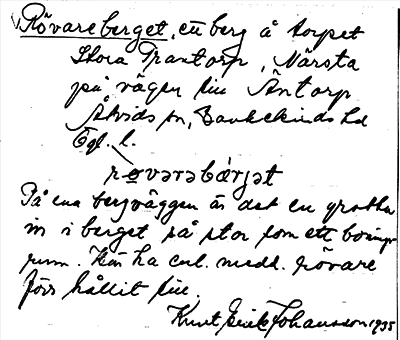 Rövareberget, ett berg å torpet
Stora Trantorp, Närsta
på vägen till Äntorp
Åtvids sn, Bankekinds hd
Ögl. l.
røvarəbærjət
På ena bergväggen är det en grotta
in i berget så stor som ett bonings-
rum. Här ha enl. medd. rövare
förr hållit till.
Kurt Erik Johansson 1935